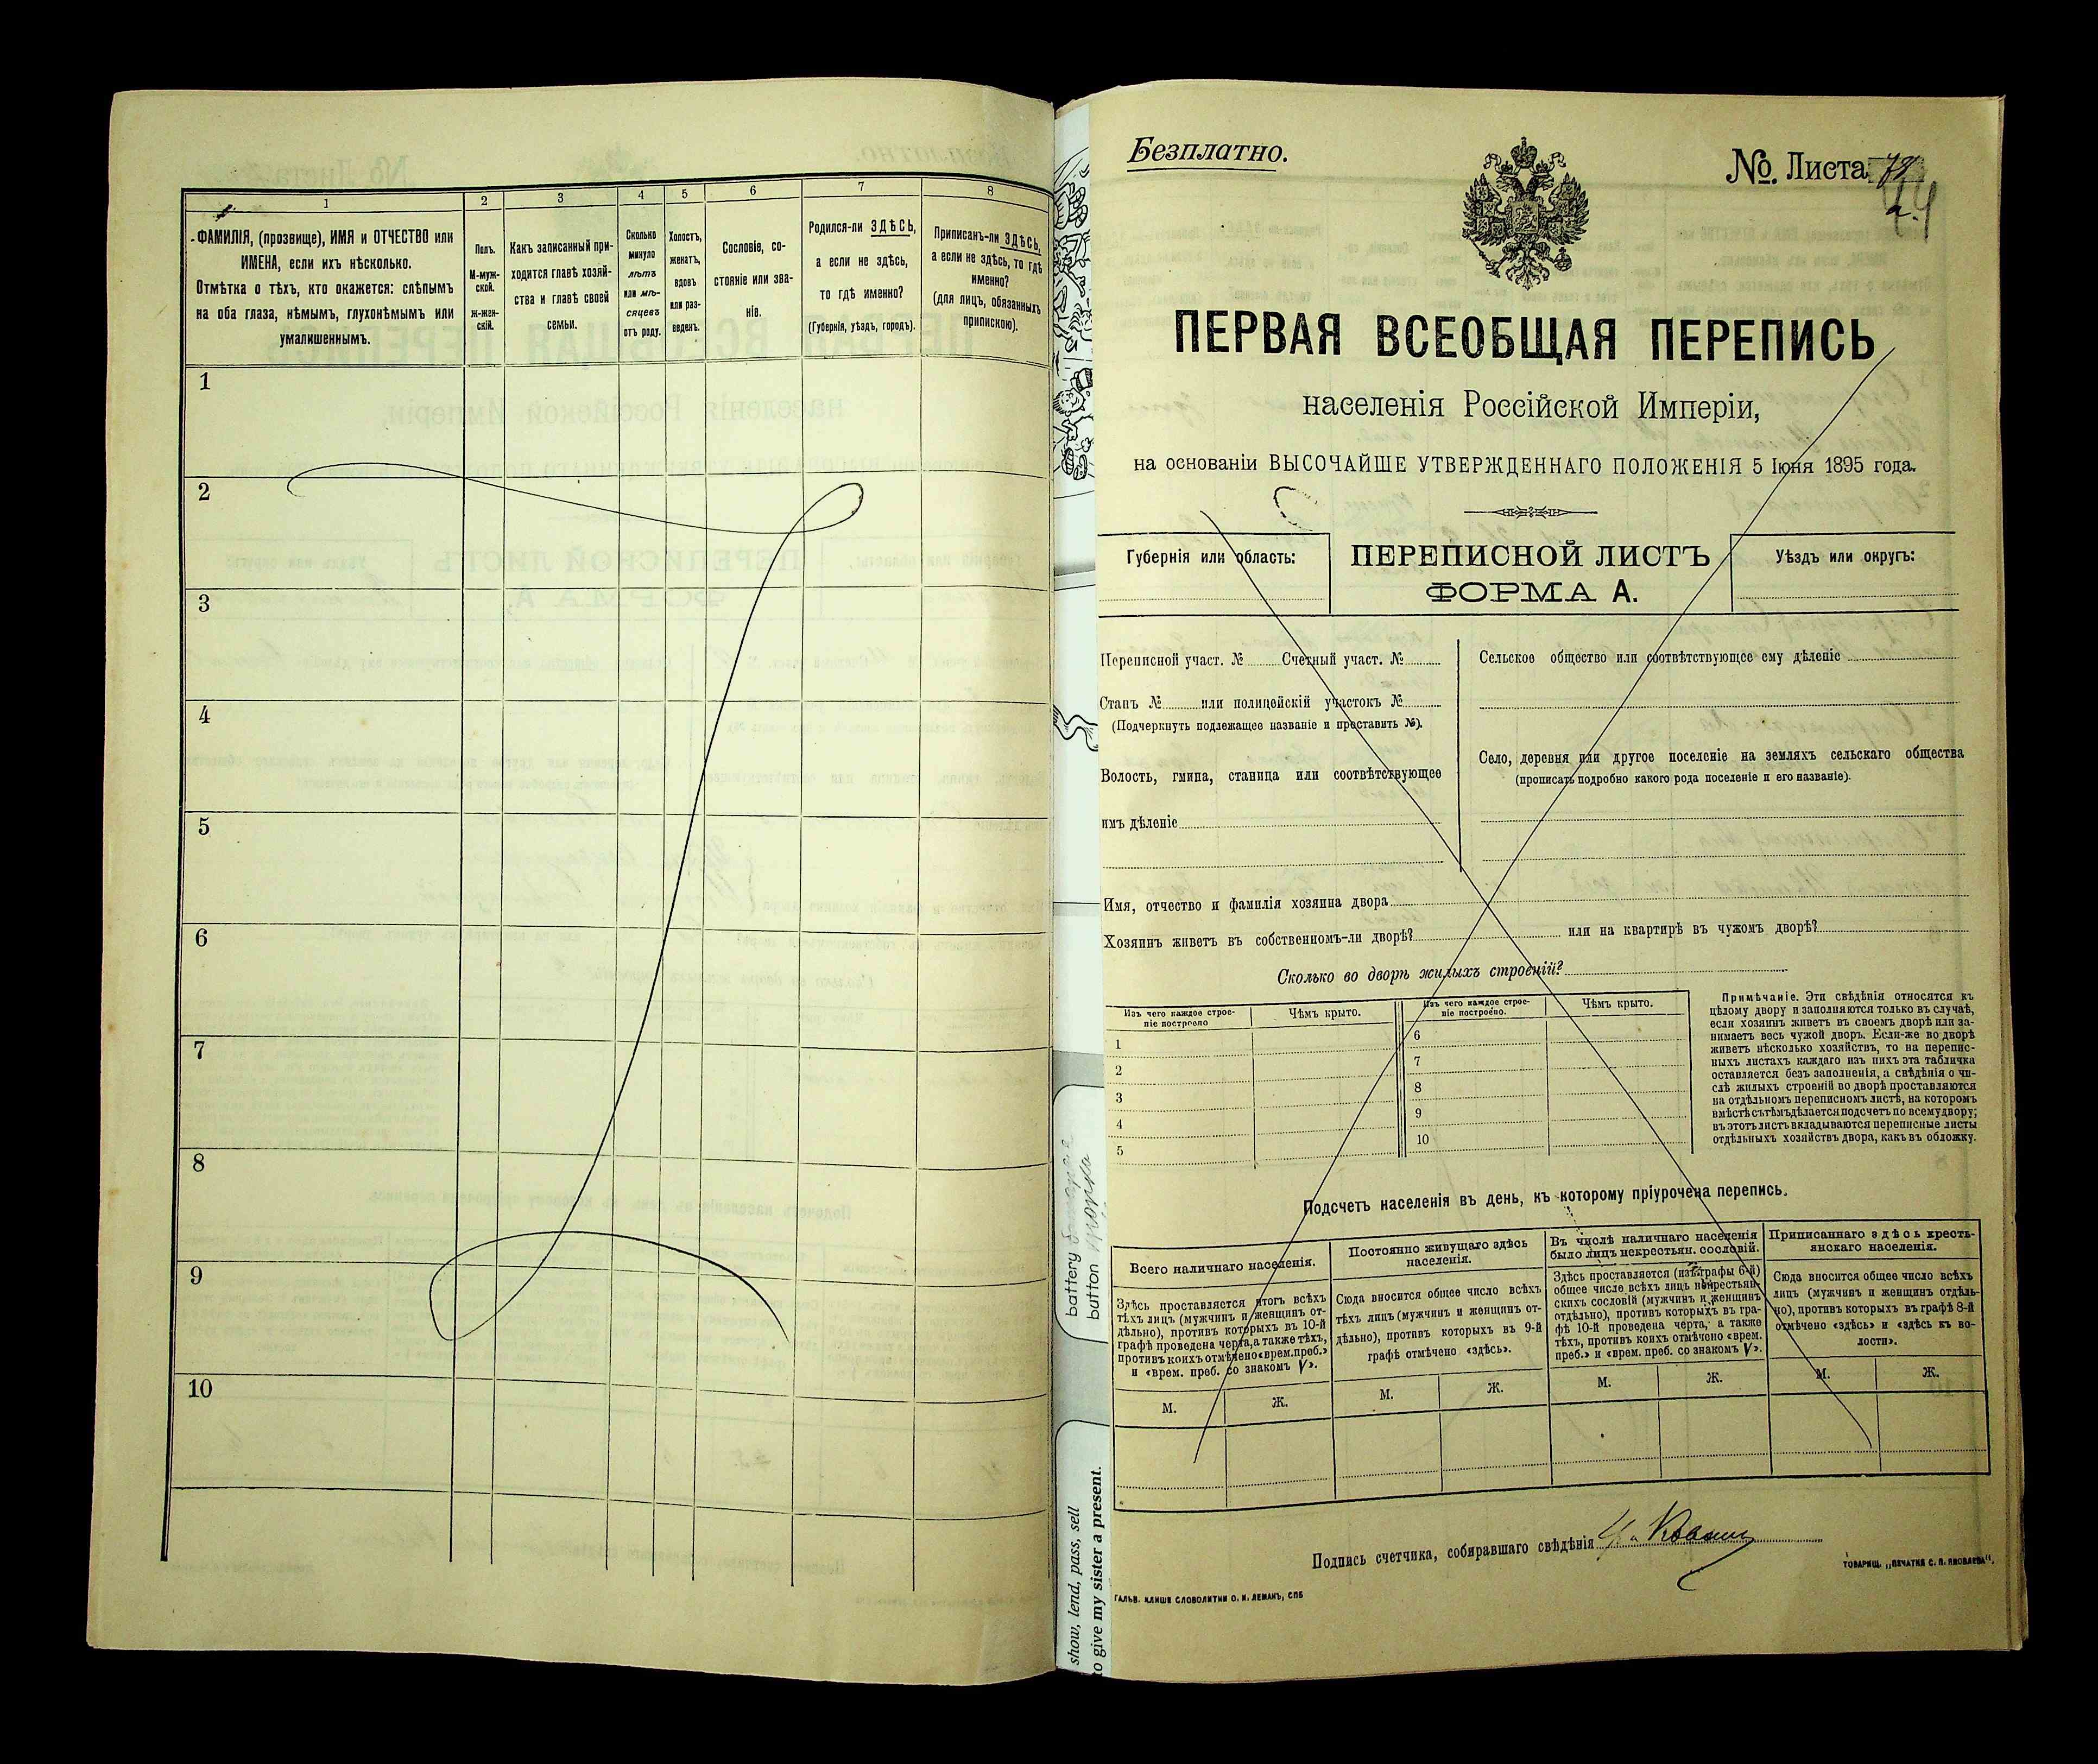 1
2
3
4
5
6
7
8
ФАМИЛІЯ, (прозвище), ИМЯ и ОТЧЕСТВО или
ИМЕНА, если ихъ нѣсколько.
Отмѣтка о тѣхъ, кто окажется: слѣпымъ
на оба глаза, нѣмымъ, глухонѣмымъ или
умалишеннымъ.
Полъ.
М-муж-
ской.
Ж-жен-
скій.
Какъ записанный при-
ходится главѣ хозяй-
ства и главѣ своей
семьи.
Сколько
минуло
лѣтъ
или мѣ-
сяцевъ
отъ роду.
Холостъ,
женатъ,
вдовъ
или раз-
веденъ.
Сословіе, со-
стояніе или зва-
ніе.
Родился-ли ЗДѢСЬ,
а если не здѣсь,
то гдѣ именно?
(Губернія, уѣздъ, городъ).
Приписанъ-ли ЗДѢСЬ,
а если не здѣсь, то гдѣ
именно?
(для лицъ, обязанныхъ
припискою).
1
2
3
4
5
6
7
8
9
10
battery
button кнопка
show, lend, pass, sell
to give my sister a present.
Безплатно.
№. Листа
ПЕРВАЯ ВСЕОБЩАЯ ПЕРЕПИСЬ
населенія Россійской Имперіи,
на основаніи ВЫСОЧАЙШЕ УТВЕРЖДЕННАГО ПОЛОЖЕНІЯ 5 Іюня 1895 года.
Губернія или область:
ПЕРЕПИСНОЙ ЛИСТЪ
ФОРМА А.
Уѣздъ или округъ:
Переписной участ. № Счетный участ. №
Станъ № или полицейскій участокъ №
(Подчеркнуть подлежащее названіе и проставить №).
Волость, гмина, станица или соотвѣтствующее
имъ дѣленіе
Сельское общество или соотвѣтствующее ему дѣленіе
Село, деревня или другое поселеніе на земляхъ сельскаго общества
(прописать подробно какого рода поселеніе и его названіе).
Имя, отчество и фамилія хозяина двора
Хозяинъ живетъ въ собственномъ-ли дворѣ? или на квартирѣ въ чужомъ дворѣ?
Сколько во дворѣ жилыхъ строеній?
Изъ чего каждое строе-
ніе построено
Чѣмъ крыто.
Изъ чего каждое строе-
ніе построено.
Чѣмъ крыто.
1
2
3
4
5
6
7
8
9
10
Примѣчаніе. Эти свѣдѣнія относятся къ
цѣлому двору и заполняются только въ случаѣ,
если хозяинъ живетъ въ своемъ дворѣ или за-
нимаетъ весь чужой дворъ. Если-же во дворѣ
живетъ нѣсколько хозяйствъ, то на перепис-
ныхъ листахъ каждаго изъ нихъ эта табличка
оставляется безъ заполненія, а свѣдѣнія о чи-
слѣ жилыхъ строеній во дворѣ проставляются
на отдѣльномъ переписномъ листѣ, на которомъ
вмѣстѣ съ тѣмъ дѣлается подсчетъ по всему двору;
въ этотъ листъ вкладываются переписные листы
отдѣльныхъ хозяйствъ двора, какъ въ обложку.
Подсчетъ населенія въ день, къ которому пріурочена перепись.
Всего наличнаго населенія.
Постоянно живущаго здѣсь
населенія.
Въ числѣ наличнаго населенія
было лицъ некрестьян. сословій.
Приписаннаго здѣсь кресть-
янскаго населенія.
Здѣсь проставляется итогъ всѣхъ
тѣхъ лицъ (мужчинъ и женщинъ от-
дѣльно), противъ которыхъ въ 10-й
графѣ проведена черта, а также тѣхъ,
противъ коихъ отмѣчено «врем. преб.»
и «врем. преб. со знакомъ V».
Сюда вносится общее число всѣхъ
тѣхъ лицъ (мужчинъ и женщинъ от-
дѣльно), противъ которыхъ въ 9-й
графѣ отмѣчено «здѣсь».
Здѣсь проставляется (изъ графы 6-й)
общее число всѣхъ лицъ некрестьян-
скихъ сословій (мужчинъ и женщинъ
отдѣльно), противъ которыхъ въ гра-
фѣ 10-й проведена черта, а также
тѣхъ, противъ коихъ отмѣчено «врем.
преб.» и «врем. преб. со знакомъ V».
Сюда вносится общее число всѣхъ
лицъ (мужчинъ и женщинъ отдѣль-
но), противъ которыхъ въ графѣ 8-й
отмѣчено «здѣсь» и «здѣсь къ во-
лости».
М. Ж. М. Ж. М. Ж. М. Ж.
Подпись счетчика, собиравшаго свѣдѣнія
ГАЛЬВ. КЛИШЕ СЛОВОЛИТНИ О. И. ЛЕМАНЪ, СПБ
ТОВАРИЩ. „ПЕЧАТНЯ С. П. ЯКОВЛЕВА".